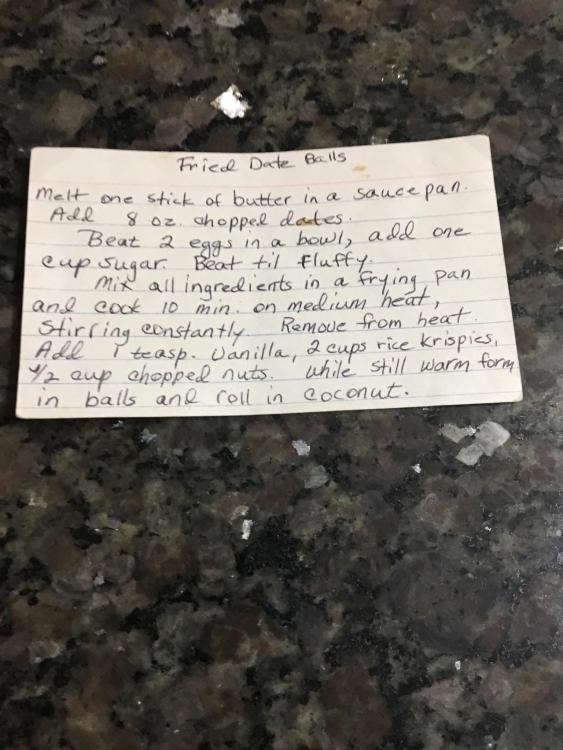 Fried Date Balls
Melt one stick of butter in a sauce pan.
Add 8 oz. chopped dates.
Beat 2 eggs in a bowl, add one
cup sugar. Beat til fluffy.
Mix all ingredients in a frying pan
and cook 10 min. on medium heat,
stirring constantly. Remove from heat.
Add 1 teasp. Vanilla, 2 cups rice krispies,
1/2 cup chopped nuts. While still warm form
in balls and roll in coconut.